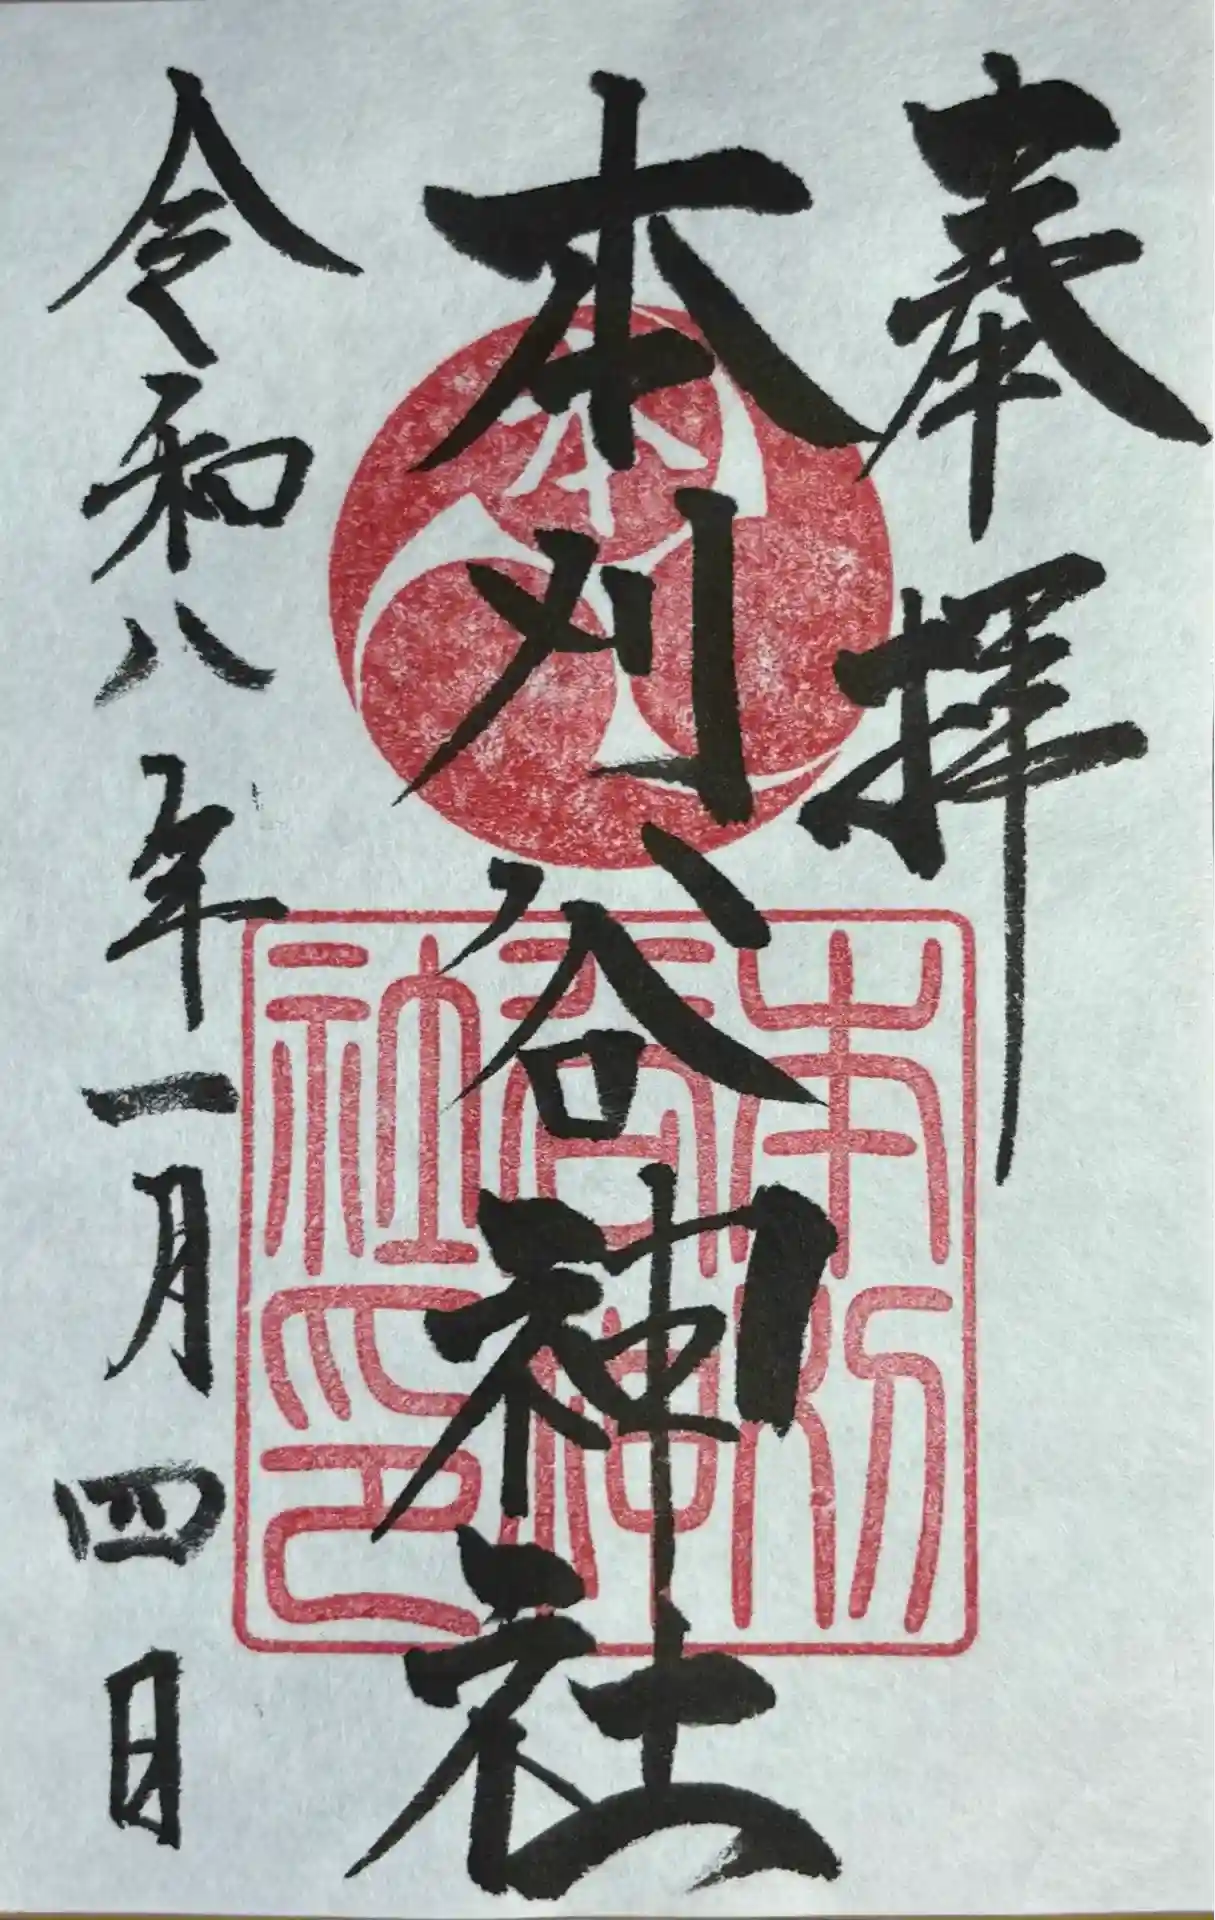 奉拝
本刈谷神社
令和八年一月四日
本
本刈谷神社印